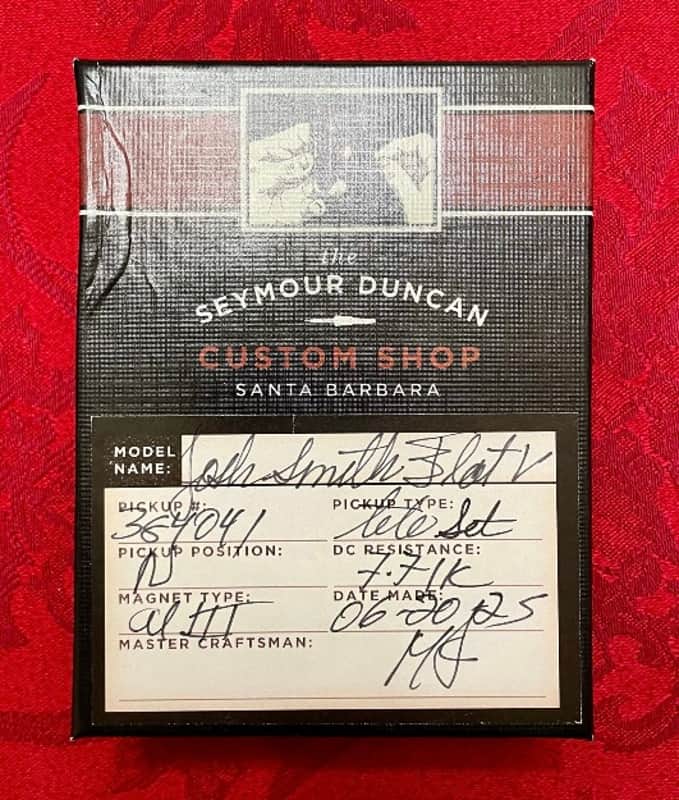 the
SEYMOUR DUNCAN
CUSTOM SHOP
SANTA BARBARA
MODEL NAME: Josh Smith Flat V
PICKUP #: 364041
PICKUP TYPE: tele Set
PICKUP POSITION: N
DC RESISTANCE: 7.71K
MAGNET TYPE: al III
DATE MADE: 06-20-25
MASTER CRAFTSMAN: MJ